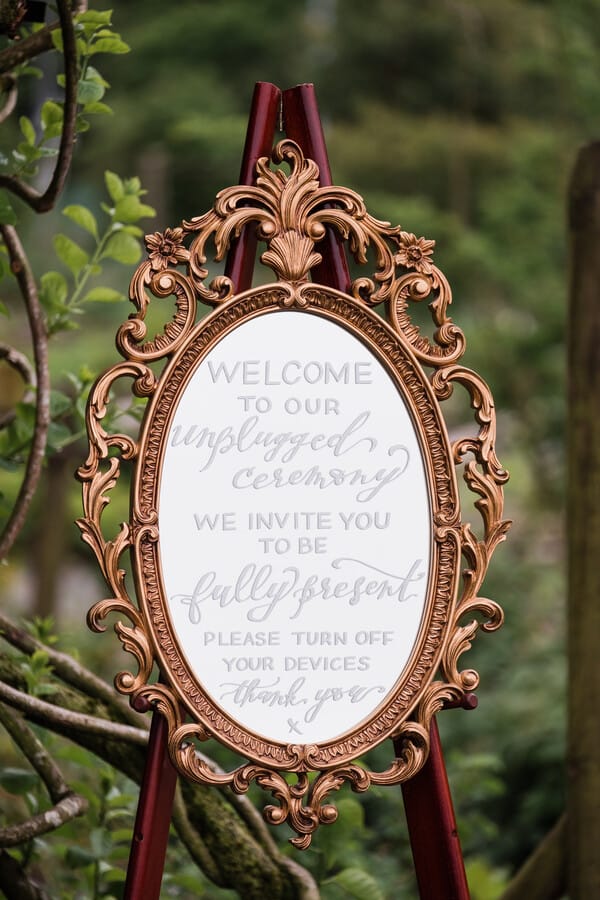 WELCOME
TO OUR
unplugged
ceremony
WE INVITE YOU
TO BE
fully present
PLEASE TURN OFF
YOUR DEVICES
thank you
x